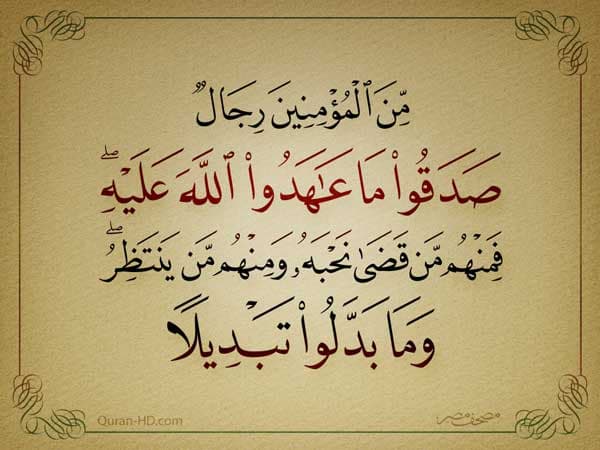 مِّنَ ٱلْمُؤْمِنِينَ رِجَالٌ
صَدَقُوا۟ مَا عَـٰهَدُوا۟ ٱللَّهَ عَلَيْهِ ۖ
فَمِنْهُم مَّن قَضَىٰ نَحْبَهُۥ وَمِنْهُم مَّن يَنتَظِرُ ۖ
وَمَا بَدَّلُوا۟ تَبْدِيلًا
Quran-HD.com مصحف مصر